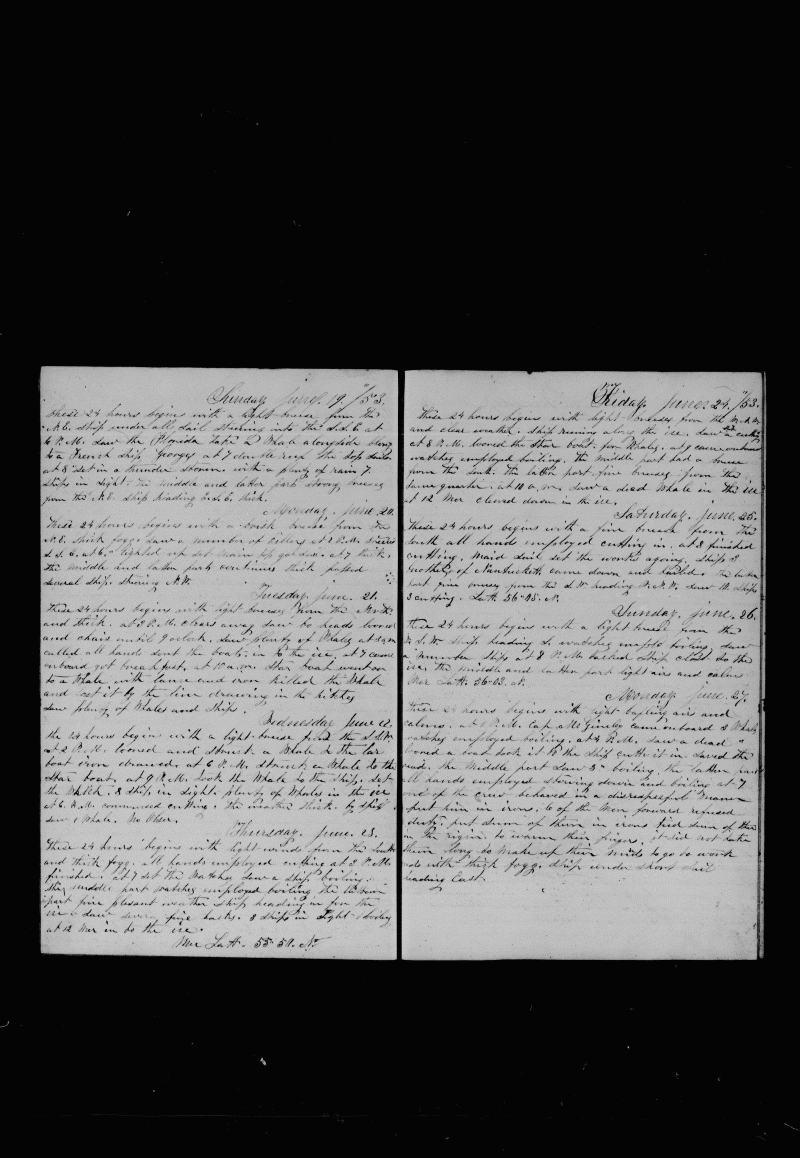 Sunday June 19, /53.
these 24 hours begins with a light breese from the
N.E. ship under all sail steering into the S.S.E. at
6 P.M. saw the Florida take a Whale alongside
to a French ship at 7 double reef the top sails
at 8 set in a thunder storm with a plenty of rain 7
ships in sight. the middle and latter part strong breeses
from the N.E. ship heading E.S.E. thick.
Monday. june. 20.
These 24 hours begins with a breese from the
N.E. thick fogg. saw a number of at 2 P.M.
S.S.E. at 6 lighted up set main top at 7 thick.
the middle and latter part continues thick passed
several ships steering N.W.
Tuesday. june. 21.
these 24 hours begins with light breeses from the North
and thick. at 3 P.M. clears away saw bo heads lowred
and chais until 9 oclock. saw plenty of Whales at 3 a.m
called all hands sent the boats in to the ice, at 7 came
onboard got breakfast. at 10 a.m. star boat went on
to a Whale with lance and iron killed the Whale
and lost it by the line drawing in the
saw plenty of Whales and Ships.
Wednesday June 22.
the 24 hours begin with a light breese from the S.S.W.
at 2 P.M. lowred and struck a Whale to the lar
boat iron drawed. at 6 P.M. struck a Whale to the
Star boat. at 9 P.M. took the Whale to the ship. set
the Watch. 8 ship in sight. plenty of Whales in the ice
at 6 A.M. commenced cutting. the weather thick. by
saw 1 Whale. No Obser.
Thursday. June. 23.
these 24 hours begins with light winds from the South
and thick fogg. all hands employed cutting at 2 P.M.
finished. at 7 set the watches saw a ship boiling.
the middle part watches employed boiling the latter
part fine plesant weather ship heading in for the
ice saw seven backs. 8 ships in sight 1 boiling
at 12 Mer in to the ice.
Mer Latt. 55-50. N.
Friday. june. 24. /53.
these 24 hours begins with light breeses from the
and clear weather. ship runing along the ice. saw
at 8 P.M. lowred the Star boat. for Whales. at 9 came onboard
watches employed boiling. the middle part had a breese
from the South. the latter part fine breeses from the
same quarter. at 10 a.m. saw a dead Whale in the ice
at 12 Mer clewed down in the ice.
Saturday. june. 25.
these 24 hours begins with a fine breese from the
South all hands employed cutting in. at 8 finished
cutting. maid sail set the works agoing. ship
of Nantuckett came down and hailed. the latter
part fine breeses from the S.W. heading W.N.W. saw 10 ships
3 cutting. Latt. 56-05. N.
Sunday. june. 26.
these 24 hours begins with a light breese from the
W.S.W. ship heading S. watches boiling. saw
a nummber ships at 8 P.M. tacked ship close to the
ice. the middle and latter part light airs and calms
Mer Latt. 56-03. N.
Monday. june. 27.
these 24 hours begins with light bafling airs and
calms. at P.M. Cap. McGinley came onboard 2 Whales
watches employed boiling. at 4 P.M. saw a dead
lowred a boat took it to the ship cutt it in saved the
the middle part saw 3 boiling. the latter part
all hands employed stowing down and boiling at 7
one of the crew behaved in a disrespectful manner
put him in irons. 6 of the Men forward refused
duty. put sum of them in irons tied sum of them
in the rigin to warm their fingers. it did not take
them long to make up their minds to go to work
with thick fogg. ship under short sail
heading East.